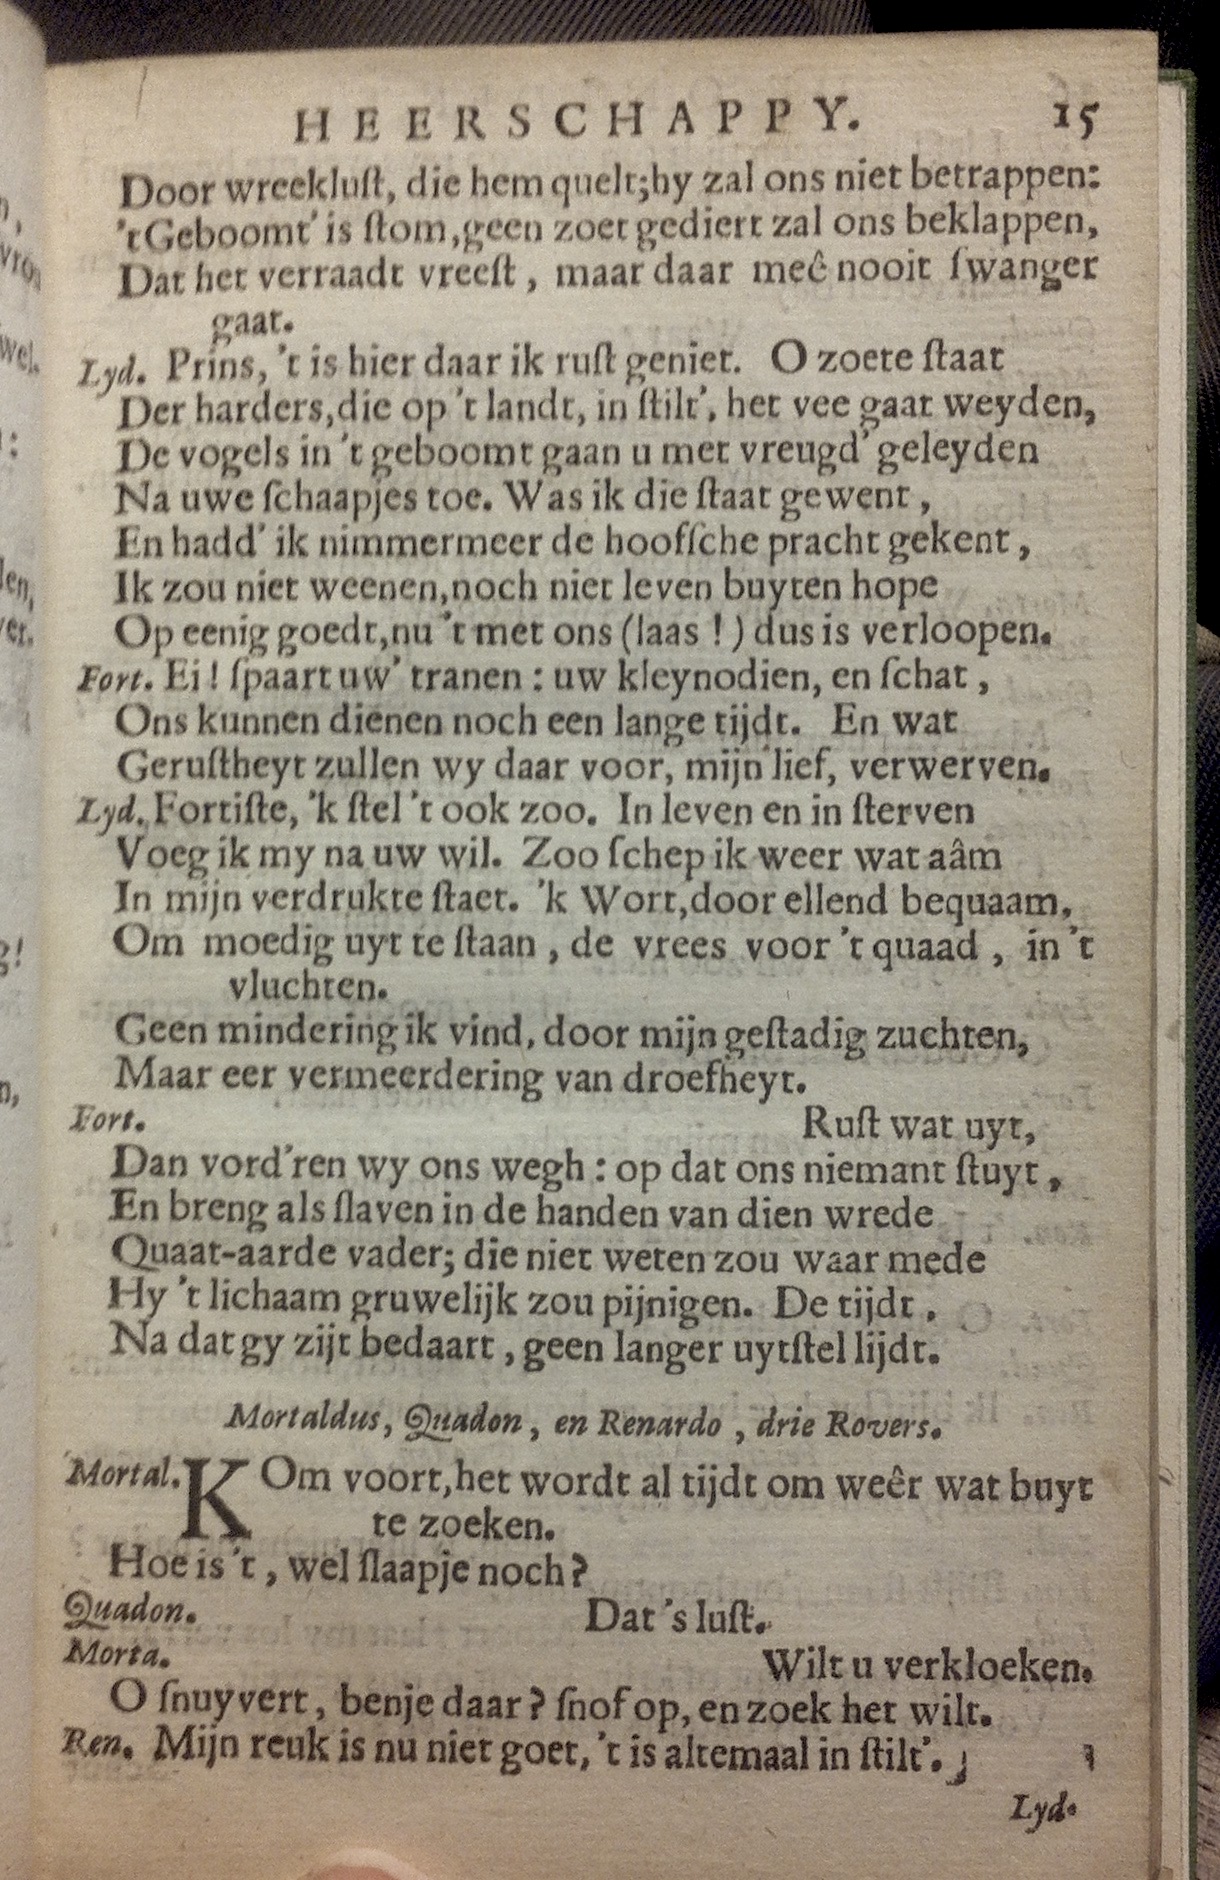 HEERSCHAPPY. 15
Door wreekluſt, die hem quelt; hy zal ons niet betrappen:
't Geboomt' is ſtom, geen zoet gediert zal ons beklappen,
Dat het verraadt vreeſt, maar daar meê nooit ſwanger
gaat.
Lyd. Prins, 't is hier daar ik ruſt geniet. O zoete ſtaat
Der harders, die op 't landt, in ſtilt', het vee gaat weyden,
De vogels in 't geboomt gaan u met vreugd' geleyden
Na uwe ſchaapjes toe. Was ik die ſtaat gewent,
En hadd' ik nimmermeer de hoofſche pracht gekent,
Ik zou niet weenen, noch niet leven buyten hope
Op eenig goedt, nu 't met ons (laas!) dus is verloopen.
Fort. Ei! ſpaart uw' tranen: uw kleynodien, en ſchat,
Ons kunnen dienen noch een lange tijdt. En wat
Geruſtheyt zullen wy daar voor, mijn lief, verwerven.
Lyd. Fortiſte, 'k ſtel 't ook zoo. In leven en in ſterven
Voeg ik my na uw wil. Zoo ſchep ik weer wat aâm
In mijn verdrukte ſtaet. 'k Wort, door ellend bequaam,
Om moedig uyt te ſtaan, de vrees voor 't quaad, in 't
vluchten.
Geen mindering ik vind, door mijn geſtadig zuchten,
Maar eer vermeerdering van droefheyt.
Fort. Ruſt wat uyt,
Dan vord'ren wy ons wegh: op dat ons niemant ſtuyt,
En breng als ſlaven in de handen van dien wrede
Quaat-aarde vader; die niet weten zou waar mede
Hy 't lichaam gruwelijk zou pijnigen. De tijdt,
Na dat gy zijt bedaart, geen langer uytſtel lijdt.
Mortaldus, Quadon, en Renardo, drie Rovers.
Mortal. KOm voort, het wordt al tijdt om weêr wat buyt
te zoeken.
Hoe is 't, wel ſlaapje noch?
Quadon. Dat 's luſt.
Morta. Wilt u verkloeken.
O ſnuyvert, benje daar? ſnof op, en zoek het wilt.
Ren. Mijn reuk is nu niet goet, 't is altemaal in ſtilt'.
Lyd.